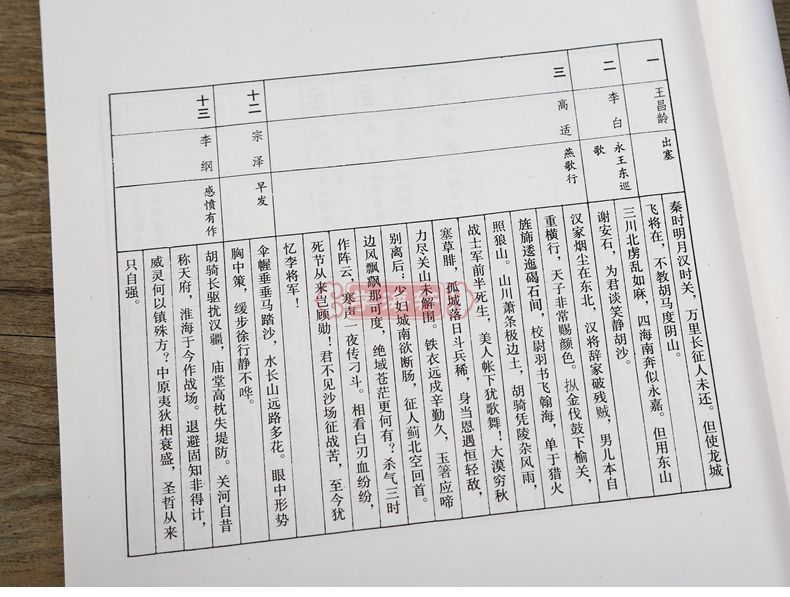 一
王昌龄
出塞
秦时明月汉时关，万里长征人未还。但使龙城
飞将在，不教胡马度阴山。
二
李白
永王东巡
歌
三川北虏乱如麻，四海南奔似永嘉。但用东山
谢安石，为君谈笑静胡沙。
三
高适
燕歌行
汉家烟尘在东北，汉将辞家破残贼，男儿本自
重横行，天子非常赐颜色。金伐鼓下榆关，
旌旆逶迤碣石间，校尉羽书飞翰海，单于猎火
照狼山。山川萧条极边土，胡骑凭陵杂风雨，
战士军前半死生，美人帐下犹歌舞！大漠穷秋
塞草腓，孤城落日斗兵稀，身当恩遇恒轻敌，
力尽关山未解围。铁衣远戍辛勤久，玉箸应啼
别离后；少妇城南欲断肠，征人蓟北空回首。
边风飘飖那可度，绝域苍茫更何有？杀气三时
作阵云，寒声一夜传刁斗。相看白刃血纷纷，
死节从来岂顾勋！君不见沙场征战苦，至今犹
忆李将军！
十二
宗泽
早发
伞幄垂垂马踏沙，水长山远路多花。眼中形势
胸中策，缓步徐行静不哗。
十三
李纲
感愤有作
胡骑长驱扰汉疆，庙堂高枕失堤防。关河自昔
称天府，淮海于今作战场。退避固知非得计，
威灵何以镇殊方？中原夷狄相衰盛，圣哲从来
只自强。